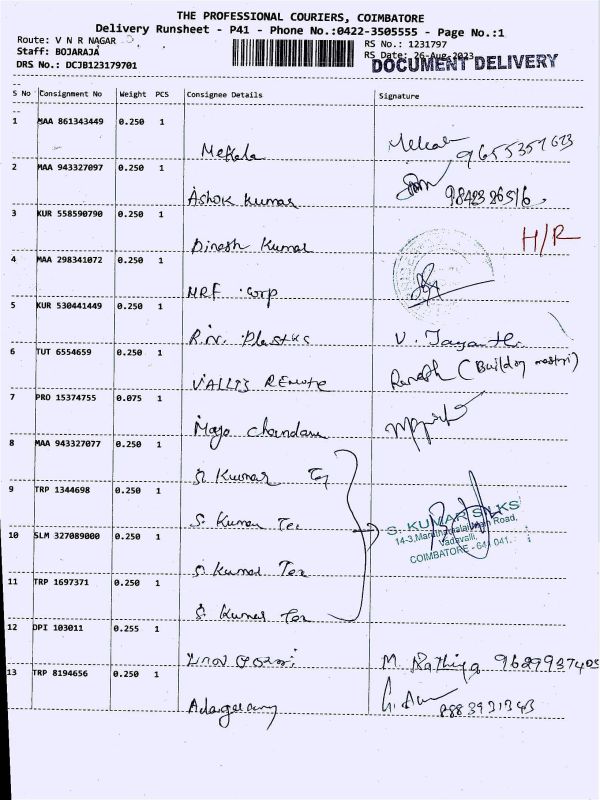 THE PROFESSIONAL COURIERS, COIMBATORE
Delivery Runsheet - P41 - Phone No.:0422-3505555 - Page No.:1
Route: V N R NAGAR
Staff: BOJARAJA
DRS No.: DCJB123179701
RS No.: 1231797
RS Date: 26-Aug-2023
DOCUMENT DELIVERY
S No Consignment No Weight PCS Consignee Details Signature
1 MAA 861343449 0.250 1
Mekala
2 MAA 943327097 0.250 1
Ashok Kumar
3 KUR 558590790 0.250 1 H/R
Dinesh Kumar
4 MAA 298341072 0.250 1
MRF Corp
5 KUR 530441449 0.250 1
R.N. Plastks V. Jayanthi
6 TUT 6554659 0.250 1
VALLIS Remote (Building mastri)
7 PRO 15374755 0.075 1
8 MAA 943327077 0.250 1
S. Kumar Tex
9 TRP 1344698 0.250 1
S. Kumar Tex
S. KUMAR SILKS
10 SLM 327089000 0.250 1
Main Road,
Vadavalli,
COIMBATORE - 641 041.
S. Kumar Tex
11 TRP 1697371 0.250 1
S. Kumar Tex
12 DPI 103011 0.255 1
M. Rathiya
13 TRP 8194656 0.250 1